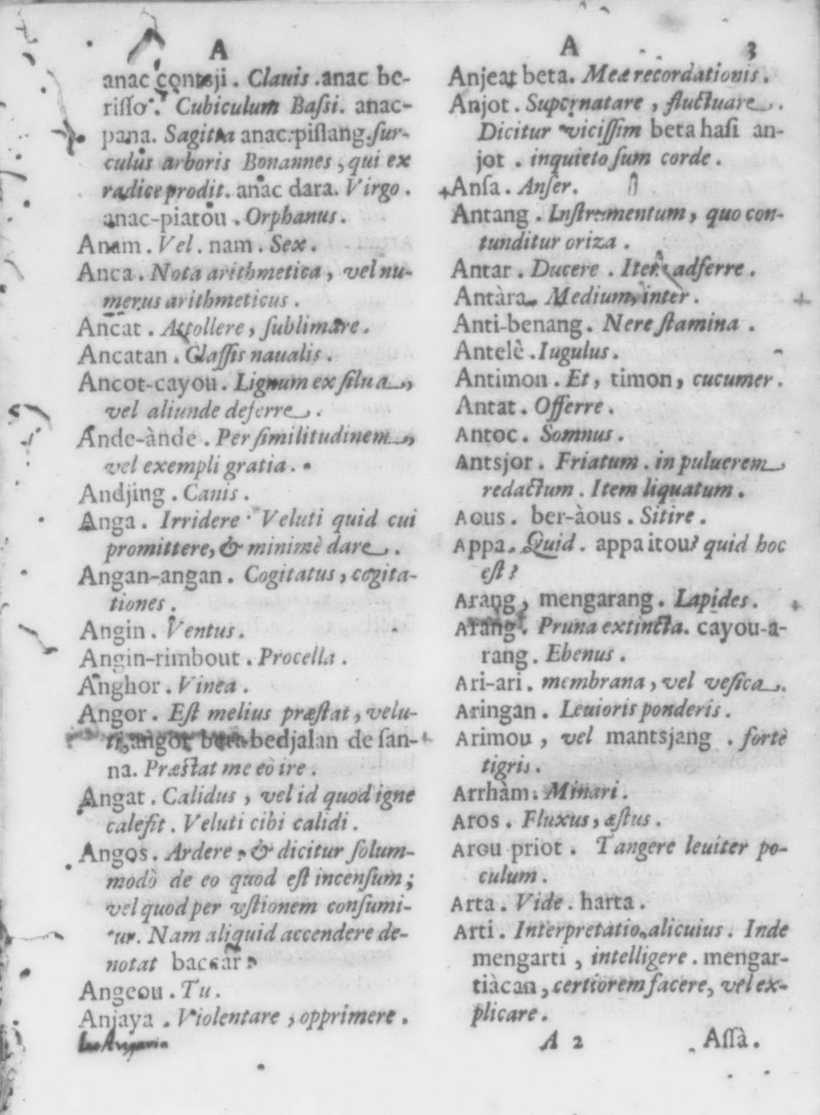 A
anac contsji. Clauis. anac be-
risso. Cubiculum Bassi. anac-
pana. Sagitta anac pisang. sur-
culus arboris Bonannes, qui ex
radice prodit. anac dara. Virgo.
anac-piatou. Orphanus.
Anam. Vel. nam. Sex.
Anca. Nota arithmetica, vel nu-
merus arithmeticus.
Ancat. Attollere, sublimare.
Ancatan. Classis naualis.
Ancot-cayou. Lignum ex silua,
vel aliunde deferre.
Ande-ànde. Per similitudinem,
vel exempli gratia.
Andjing. Canis.
Anga. Irridere. Veluti quid cui
promittere, & minimè dare.
Angan-angan. Cogitatus, cogita-
tiones.
Angin. Ventus.
Angin-rimbout. Procella.
Anghor. Vinea.
Angor. Est melius præstat, velu-
ti, angor beta bedjalan de san-
na. Præstat me eò ire.
Angat. Calidus, vel id quod igne
calefit. Veluti cibi calidi.
Angos. Ardere, & dicitur solum-
modò de eo quod est incensum;
vel quod per vstionem consumi-
tur. Nam aliquid accendere de-
notat baccàr.
Angeou. Tu.
Anjaya. Violentare, opprimere.
A 3
Anjeat beta. Meæ recordationis.
Anjot. Supernatare, fluctuare.
Dicitur vicissim beta hasi an-
jot. inquieto sum corde.
Ansa. Anser.
Antang. Instrumentum, quo con-
tunditur oriza.
Antar. Ducere. Item adferre.
Antàra. Medium, inter.
Anti-benang. Nere stamina.
Antelè. Iugulus.
Antimon. Et, timon, cucumer.
Antat. Offerre.
Antoc. Somnus.
Antsjor. Friatum. in puluerem
redactum. Item liquatum.
Aous. ber-àous. Sitire.
Appa. Quid. appa itou? quid hoc
est?
Arang, mengarang. Lapides.
Arang. Pruna extincta. cayou-a-
rang. Ebenus.
Ari-ari. membrana, vel vesica.
Aringan. Leuioris ponderis.
Arimou, vel mantsjang. fortè
tigris.
Arrhàm. Minari.
Aros. Fluxus, æstus.
Arou priot. Tangere leuiter po-
culum.
Arta. Vide. harta.
Arti. Interpretatio alicuius. Inde
mengarti, intelligere. mengar-
tiàcan, certiorem facere, vel ex-
plicare.
A 2 Assà.